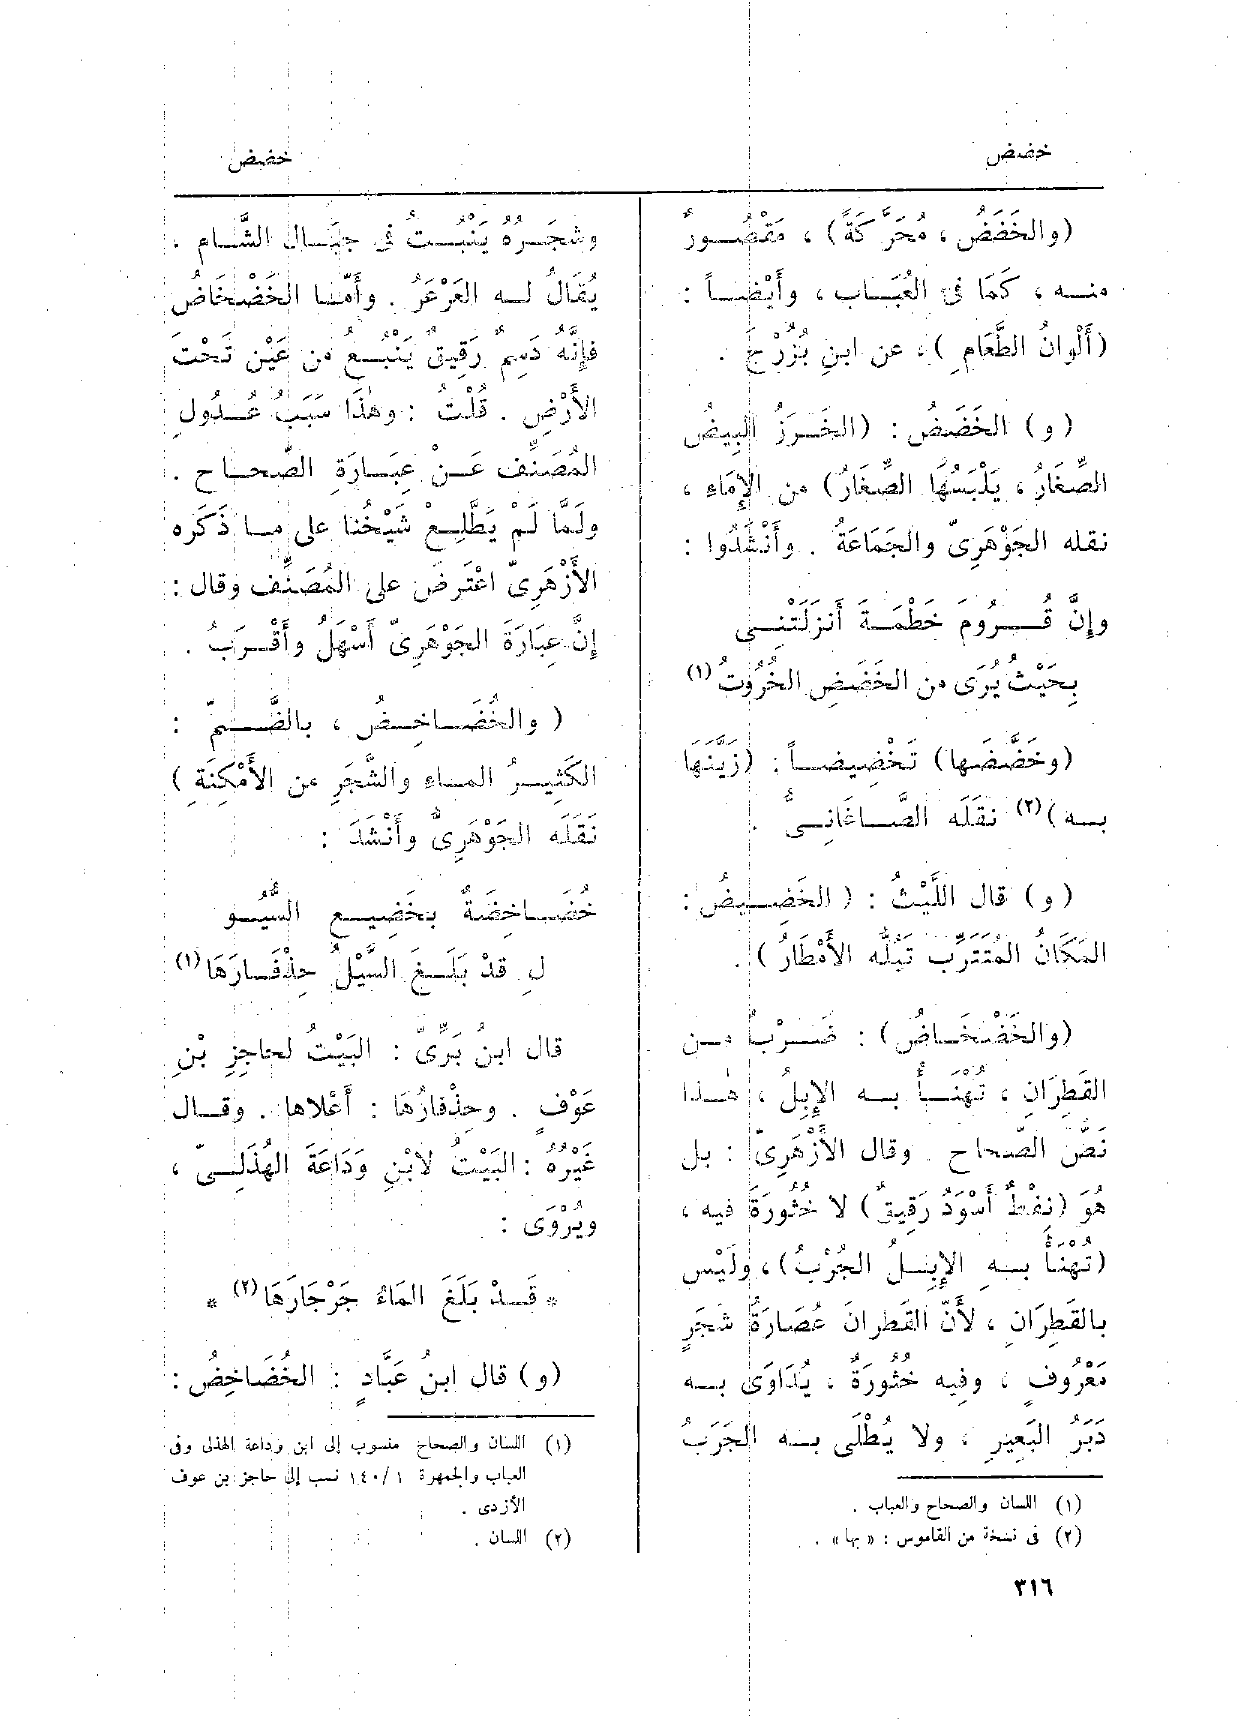 خضض
خضض
(والخَضَضُ ، مُحَرَّكَةً) ، مَقْصُورٌ
منه ، كَمَا فى العُبَاب ، وأَيْضاً :
(أَلْوانُ الطَّعَامِ ) ، عن ابنِ بُزُرْجَ .
( و ) الخَضَضُ : (الخَرَزُ البِيضُ
الصِّغَارُ ، يَلْبَسُهَا الصِّغَارُ) من الإِمَاءِ ،
نقله الجَوْهَرِىّ والجَمَاعَةُ . وأَنْشَدُوا :
وإِنَّ قُرُومَ خَطْمَةَ أَنزَلَتْنِى
بِحَيْثُ يُرَى من الخَضَضِ الخُرُوتُ (١)
(وخَضَّضَها) تَخْضِيضاً : (زَيَّنَهَا
به ) (٢) نقَلَه الصَّاغَانِىُّ .
( و ) قال اللَّيْثُ : ( الخَضِيضُ :
المَكَانُ المُتَتَرِّب تَبُلُّه الأَمْطَارُ ) .
(والخَضْخَاضُ) : ضَرْبٌ من
القَطِرَانِ ، تُهْنَأُ به الإِبِلُ ، هٰذا
نَصُّ الصّحاح . وقال الأَزْهَرِىّ : بل
هُوَ (نِفْطٌ أَسْوَدُ رَقِيقٌ) لا خُثُورَةَ فيه ،
(تُهْنَأُ بهِ الإِبِلُ الجُرْبُ) ، ولَيْس
بالقَطِرَانِ ، لأَنّ القَطِرانَ عُصَارَةُ شَجَرٍ
مَعْرُوفٍ ، وفيه خُثُورَةٌ ، يُدَاوَى به
دَبَرُ البَعِيرِ ، ولا يُطْلَى به الجَرَبُ
(١) اللسان والصحاح والعباب .
(٢) فى نسخة من القاموس : « بها » .
وشَجَرُهُ يَنْبُتُ فى جِبَال الشَّام .
يُقَالُ له العَرْعَرُ . وأَمّا الخَضْخَاضُ
فإِنَّهُ دَسِمٌ رَقِيقٌ يَنْبُعُ من عَيْنٍ تَحْتَ
الأَرْضِ . قُلْتُ : وهٰذَا سَبَبُ عُدُولِ
المُصَنِّف عَنْ عِبَارَةِ الصّحاح .
ولَمَّا لَمْ يَطَّلِعْ شَيْخُنا على ما ذَكَره
الأَزْهَرِىّ اعْتَرضَ على المُصَنِّف وقال :
إِنَّ عِبَارَةَ الجَوْهَرِىّ أَسْهَلُ وأَقْرَبُ .
( والخُضَاخِضُ ، بالضَّمّ :
الكَثِيرُ الماء والشَّجَرِ من الأَمْكِنَةِ )
نَقَلَه الجَوْهَرِىُّ وأَنْشَدَ :
خُضَاخِضَةٌ بخَضِيعِ السُّيُو
لِ قدْ بَلَغَ السَّيْلُ حِذْفَارَهَا (١)
قال ابنُ بَرِّىّ : البَيْتُ لحاجِزِ بْنِ
عَوْفٍ . وحِذْفارُهَا : أَعْلاها . وقال
غَيْرُهُ : البَيْتُ لابْنِ وَدَاعَةَ الهُذَلِىّ ،
ويُرْوَى :
* قَدْ بَلَغَ المَاءُ جَرْجَارَهَا (٢) *
(و) قال ابنُ عَبَّادٍ : الخُضَاخِضُ :
(١) اللسان والصحاح منسوب إلى ابن وداعة الهذلى وفى
العباب والجمهرة ١ /١٤٠ نسب إلى حاجز بن عوف
الأزدى .
(٢) اللسان .
٣١٦